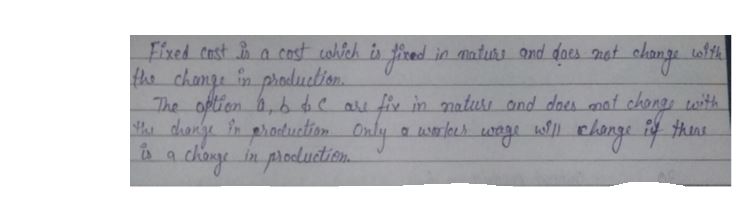 Fixed cost is a cost which is fixed in nature and does not change with
the change in production.
The option a, b & c are fix in nature and does not change with
the change in production Only a workers wage will change if there
is a change in production.